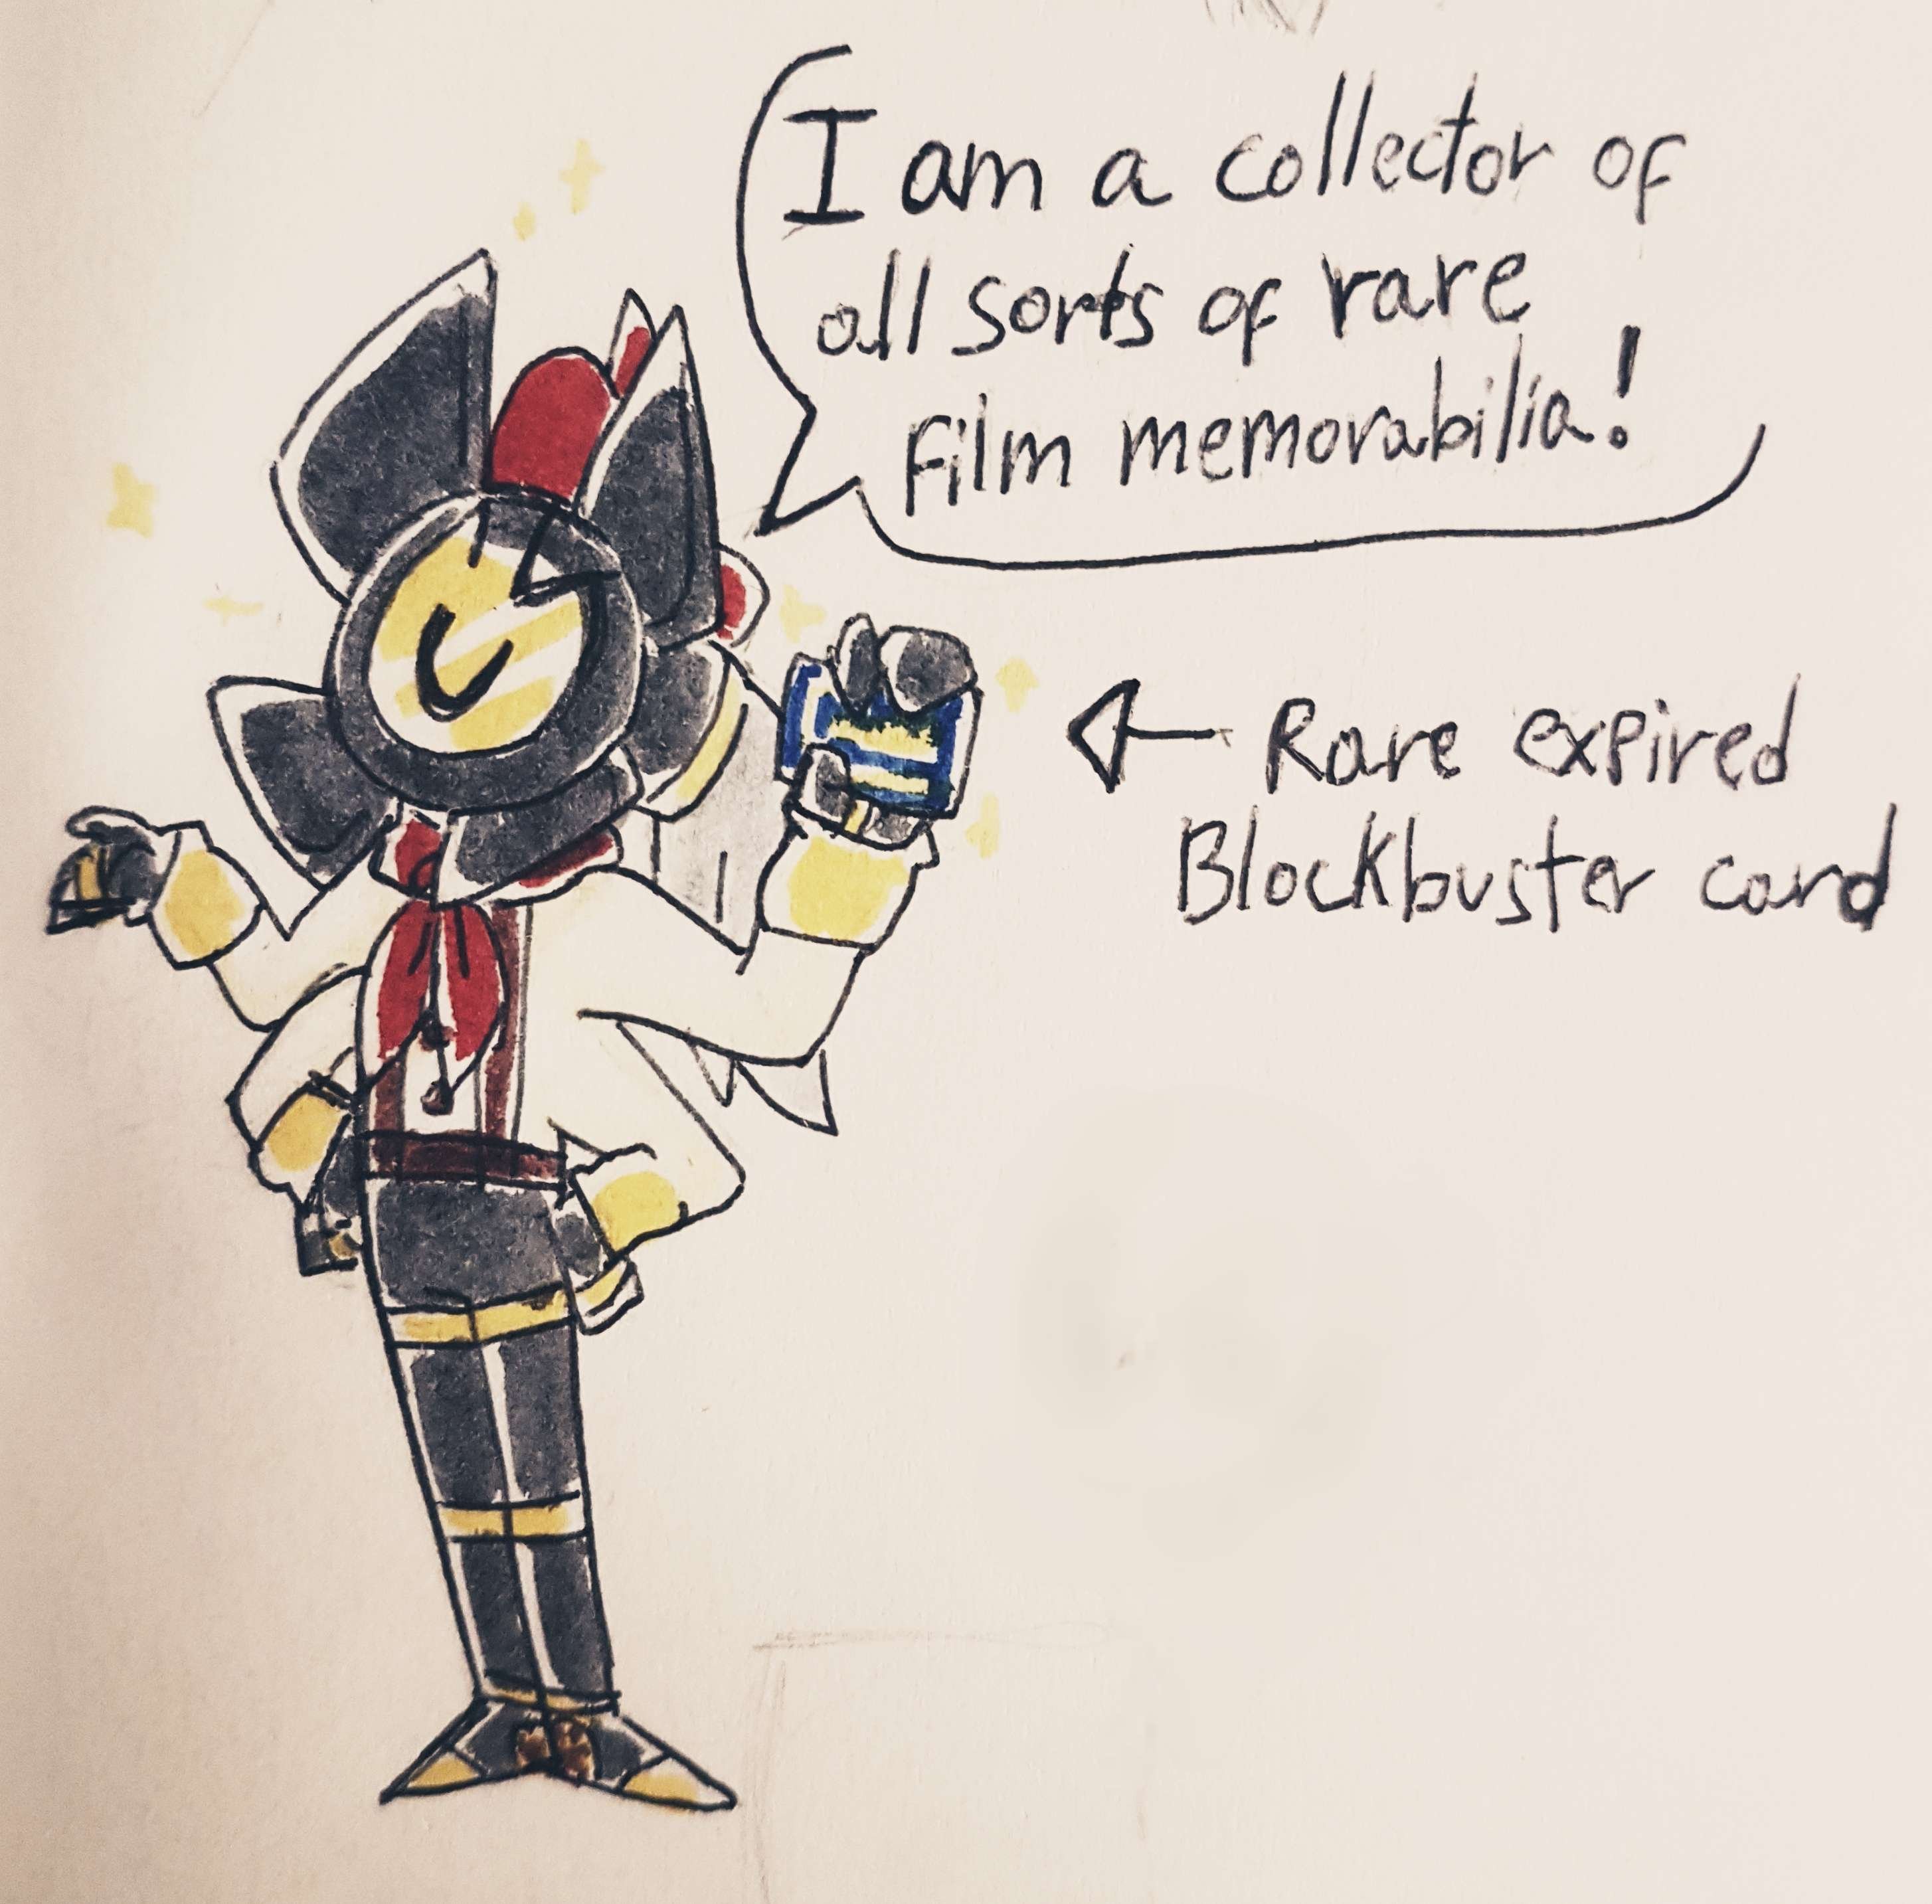 I am a collector of
all sorts of rare
film memorabilia!
Rare expired
Blockbuster card